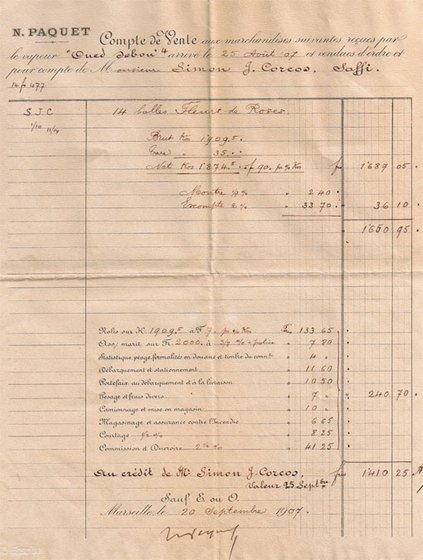 N. PAQUET
Compte de Vente aux marchandises suivantes reçues par
le vapeur "Oued Sebou" arrivé le 25 Août 07 et vendues d'ordre et
pour compte de Monsieur Simon J. Corcos, Saffi.
S J C 14 balles Fleurs de Roses
1/10 11/14
Brut Kos 1909.5
Tare " 35
Net Kos 1874.5 à f 90. p% Ks f 1687 05
Montre " 2 40
Escompte 2% " 33 70 36 10
1650 95
Nolis sur K. 1909.5 à F 7. p% Ks F 133 65
Ass. marit sur Fr. 2000. à 3/8 % + police " 7 80
Statistique, péage, formalités en douane et timbre du connt " 4
Débarquement et stationnement " 11 60
Portefaix au débarquement et à la livraison " 10 50
Pesage et frais divers " 7 240 70
Camionnage et mise en magasin " 10
Magasinage et assurance contre l'incendie " 6 65
Courtage 1/2 % " 8 25
Commission et Ducroire 2 1/2 % " 41 25
Au crédit de Mr. Simon J. Corcos, f 1410 25
Valeur 25 Septbre
Sauf E. ou O.
Marseille, le 20 Septembre 1907.